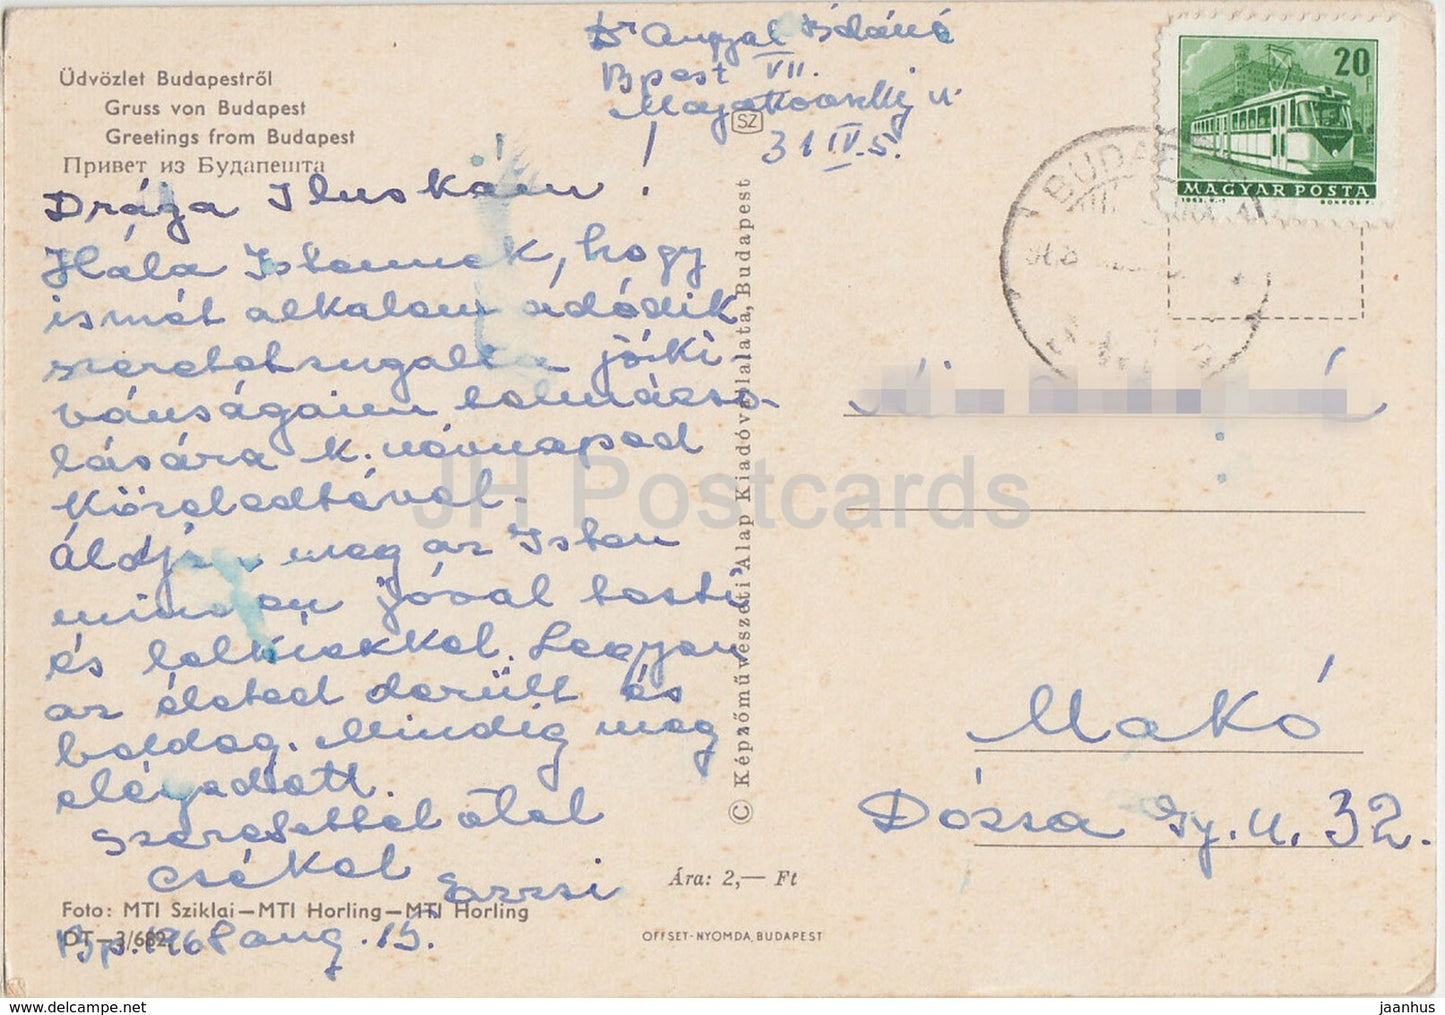 Üdvözlet Budapestről
Gruss von Budapest
Greetings from Budapest
Привет из Будапешта
Dr Angyal
Bpest VII.
Majakovszkij u.
31 IV. 5.
SZ
20
MAGYAR POSTA
BUDAPEST
Drága Iluskám!
Hála Istennek, hogy
ismét alkalom adódik
szeretetsugalta jóki-
vánságaim tolmácso-
lására k. névnapod
közeledtével.
Áldjon meg az Isten
minden jóval testi
és lelkiekkel. Legyen
az életed derült és
boldog. Mindig meg
elégedett.
Szeretettel ölel
csókol Erzsi
Bp. 1968 aug. 15.
Foto: MTI Sziklai—MTI Horling—MTI Horling
DT—3/682
© Képzőművészeti Alap Kiadóvállalata, Budapest
Ára: 2,— Ft
OFFSET-NYOMDA, BUDAPEST
Makó
Dózsa Gy. u. 32.
JH Postcards
jaanhus